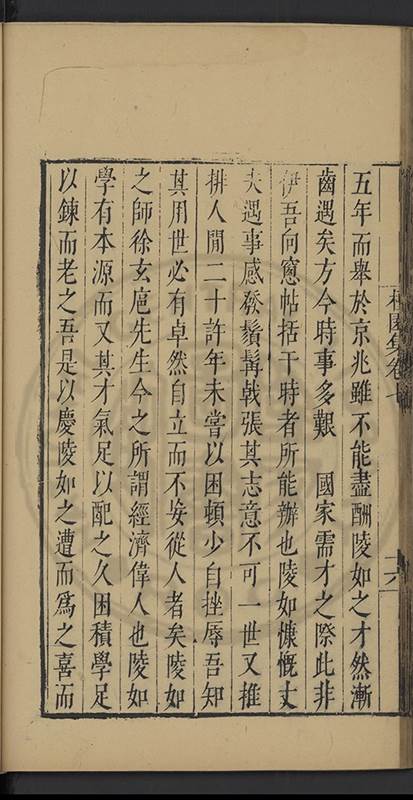 五年而舉於京兆雖不能盡酬陵如之才然漸
齒遇矣方今時事多艱　國家需才之際此非
伊吾向窻帖括干時者所能辦也陵如慷慨丈
夫遇事感發鬚髯戟張其志意不可一世又推
排人閒二十許年未嘗以困頓少自挫辱吾知
其用世必有卓然自立而不妄從人者矣陵如
之師徐玄扈先生今之所謂經濟偉人也陵如
學有本源而又其才氣足以配之久困積學足
以鍊而老之吾是以慶陵如之遭而爲之喜而
園集卷七